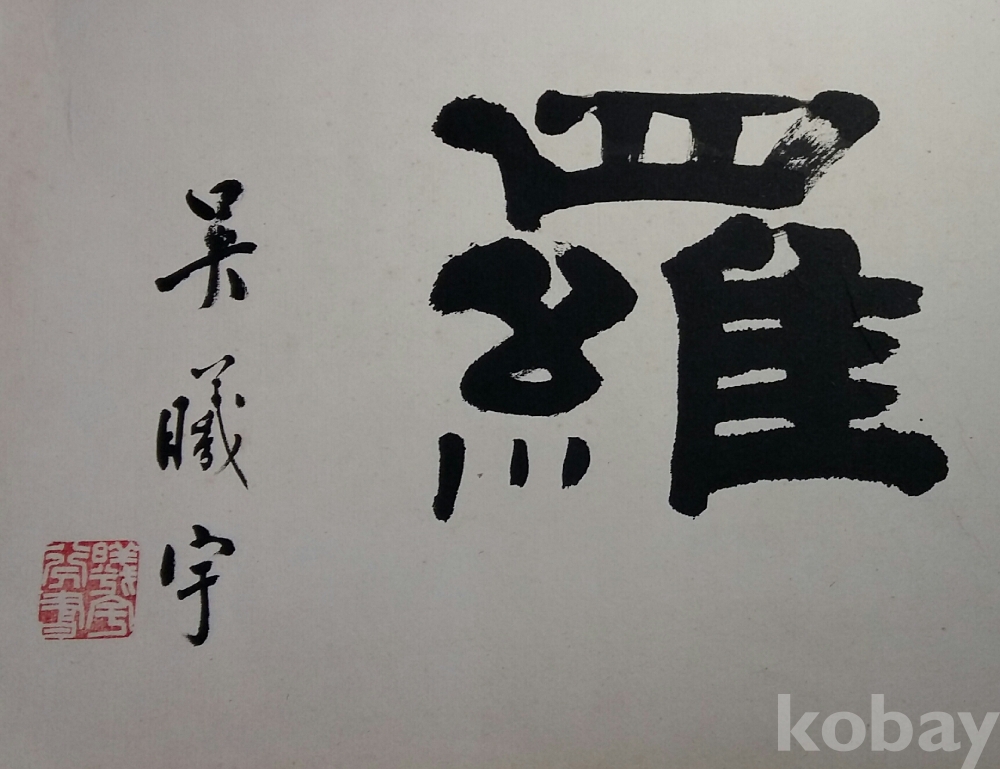 羅
吳曦宇
kobay